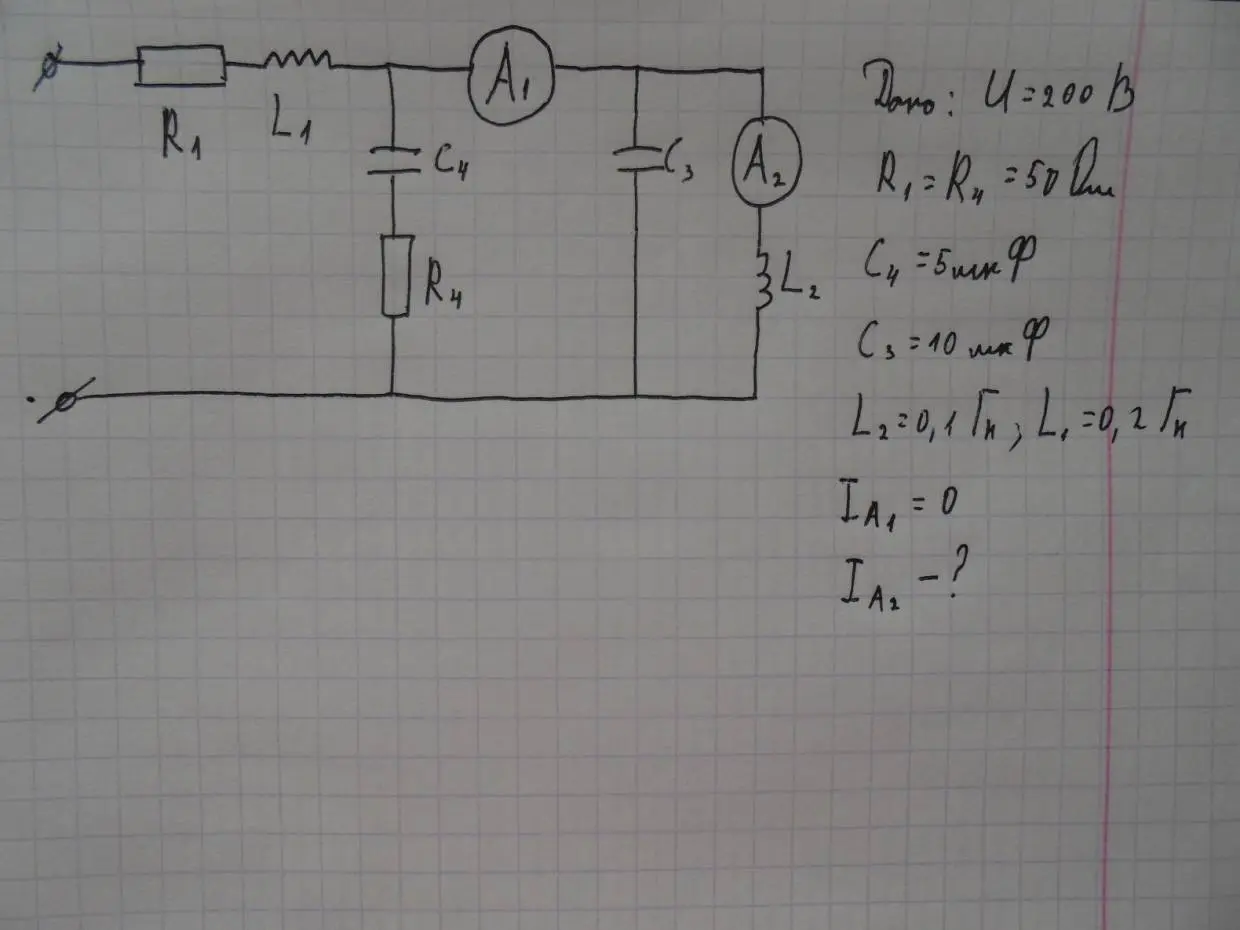 R₁
L₁
A₁
C₄
R₄
C₃
A₂
L₂
Дано: U = 200 В
R₁ = R₄ = 50 Ом
C₄ = 5 мкФ
C₃ = 10 мкФ
L₂ = 0,1 Гн ; L₁ = 0,2 Гн
I A₁ = 0
I A₂ - ?